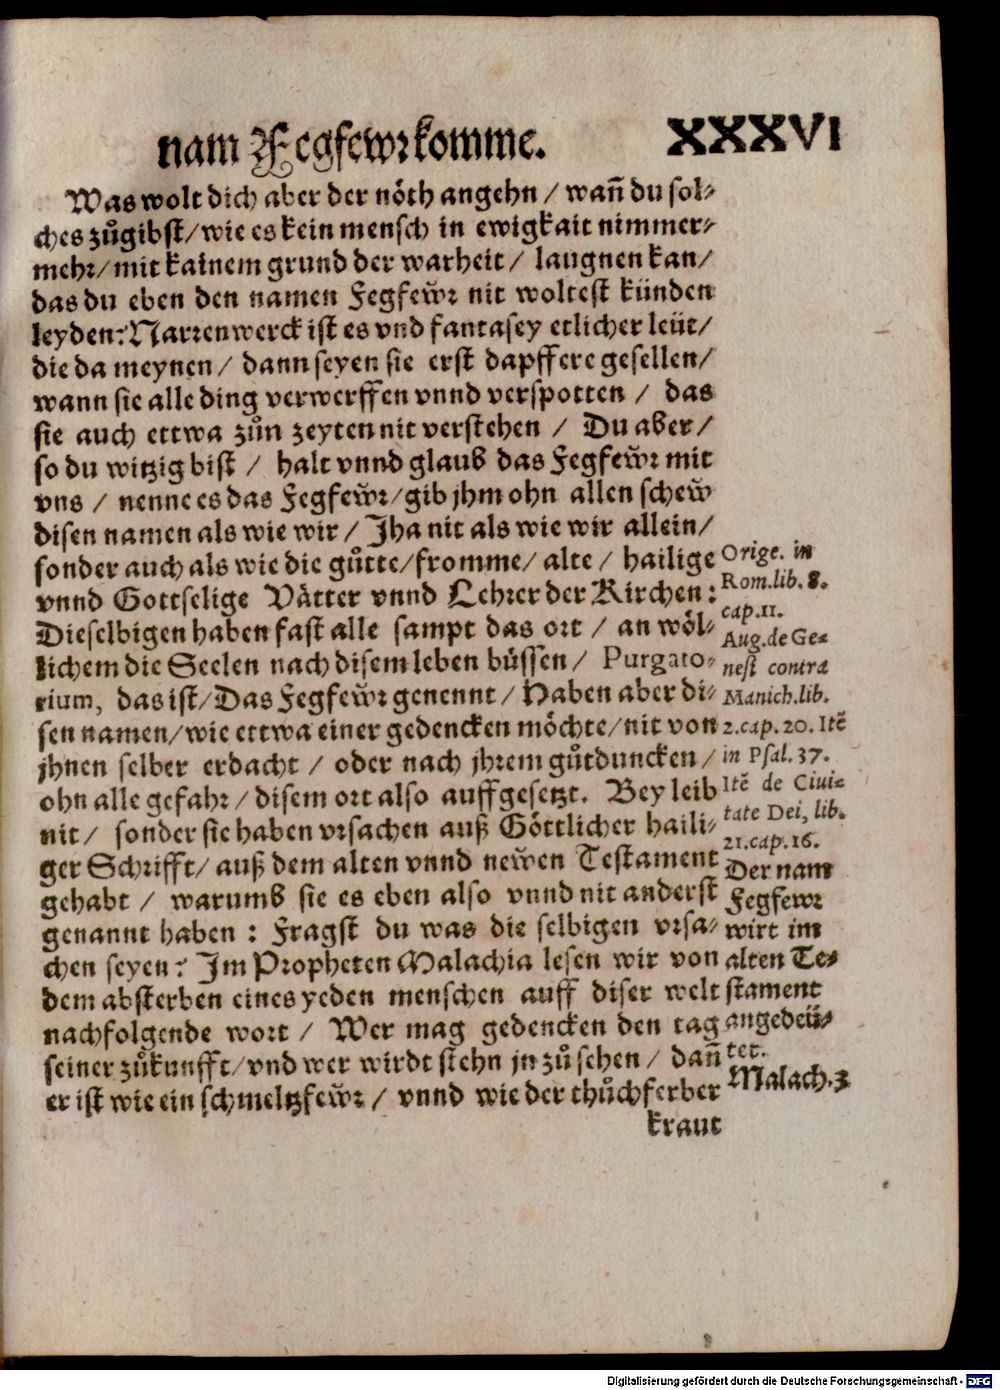 nam Fegfewr komme. XXXVI
Was wolt dich aber der nöth angehn / wañ du sol⸗
ches zůgibst / wie es kein mensch in ewigkait nimmer⸗
mehr / mit kainem grund der warheit / laugnen kan /
das du eben den namen Fegfew̃r nit woltest künden
leyden? Narrenwerck ist es vnd fantasey etlicher leüt /
die da meynen / dann seyen sie erst dapffere gesellen /
wann sie alle ding verwerffen vnnd verspotten / das
sie auch ettwa zůn zeyten nit verstehen / Du aber /
so du witzig bist / halt vnnd glaub das Fegfew̃r mit
vns / nenne es das Fegfew̃r / gib jhm ohn allen schew̃
disen namen als wie wir / Jha nit als wie wir allein /
sonder auch als wie die gůtte / fromme / alte / hailige
vnnd Gottselige Vätter vnnd Lehrer der Kirchen:
Dieselbigen haben fast alle sampt das ort / an wöl⸗
lichem die Seelen nach disem leben büssen / Purgato⸗
rium, das ist / Das Fegfew̃r genennt / Haben aber di⸗
sen namen / wie ettwa einer gedencken möchte / nit von
jhnen selber erdacht / oder nach jhrem gůtduncken /
ohn alle gefahr / disem ort also auffgesetzt. Bey leib
nit / sonder sie haben vrsachen auß Göttlicher haili⸗
ger Schrifft / auß dem alten vnnd new̃en Testament
gehabt / warumb sie es eben also vnnd nit anderst
genannt haben: Fragst du was die selbigen vrsa⸗
chen seyen? Im Propheten Malachia lesen wir von
dem absterben eines yeden menschen auff diser welt
nachfolgende wort / Wer mag gedencken den tag
seiner zůkunfft / vnd wer wirdt stehn jn zů sehen / dañ
er ist wie ein schmeltzfew̃r / vnnd wie der thůchferber
kraut
Orige. in
Rom. lib. 8.
cap. 11.
Aug. de Ge⸗
nest contra
Manich. lib.
2. cap. 20. Itẽ
in Psal. 37.
Itẽ de Ciui⸗
tate Dei, lib.
21. cap. 16.
Der nam
Fegfewr
wirt im
alten Te⸗
stament
angedeü⸗
tet.
Malach. 3
Digitalisierung gefördert durch die Deutsche Forschungsgemeinschaft - DFG